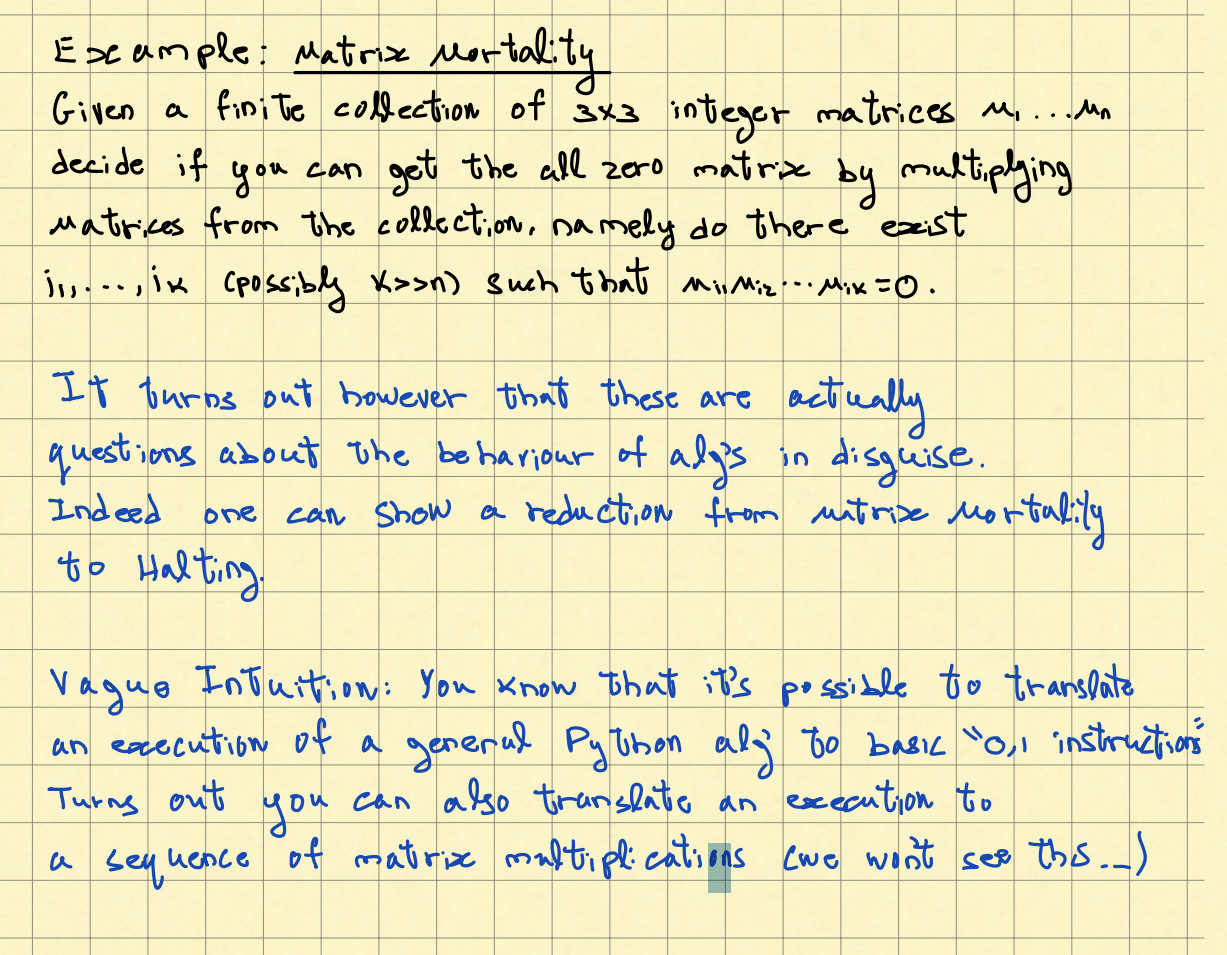 Example: Matrix Mortality
Given a finite collection of 3x3 integer matrices M1...Mn
decide if you can get the all zero matrix by multiplying
matrices from the collection, namely do there exist
i1,...,ik (possibly k>>n) such that Mi1Mi2...Mik=0.
It turns out however that these are actually
questions about the behaviour of alg's in disguise.
Indeed one can show a reduction from matrix mortality
to Halting.
Vague Intuition: You know that it's possible to translate
an execution of a general Python alg' to basic "0,1 instructions"
Turns out you can also translate an execution to
a sequence of matrix multiplications (we won't see this...)